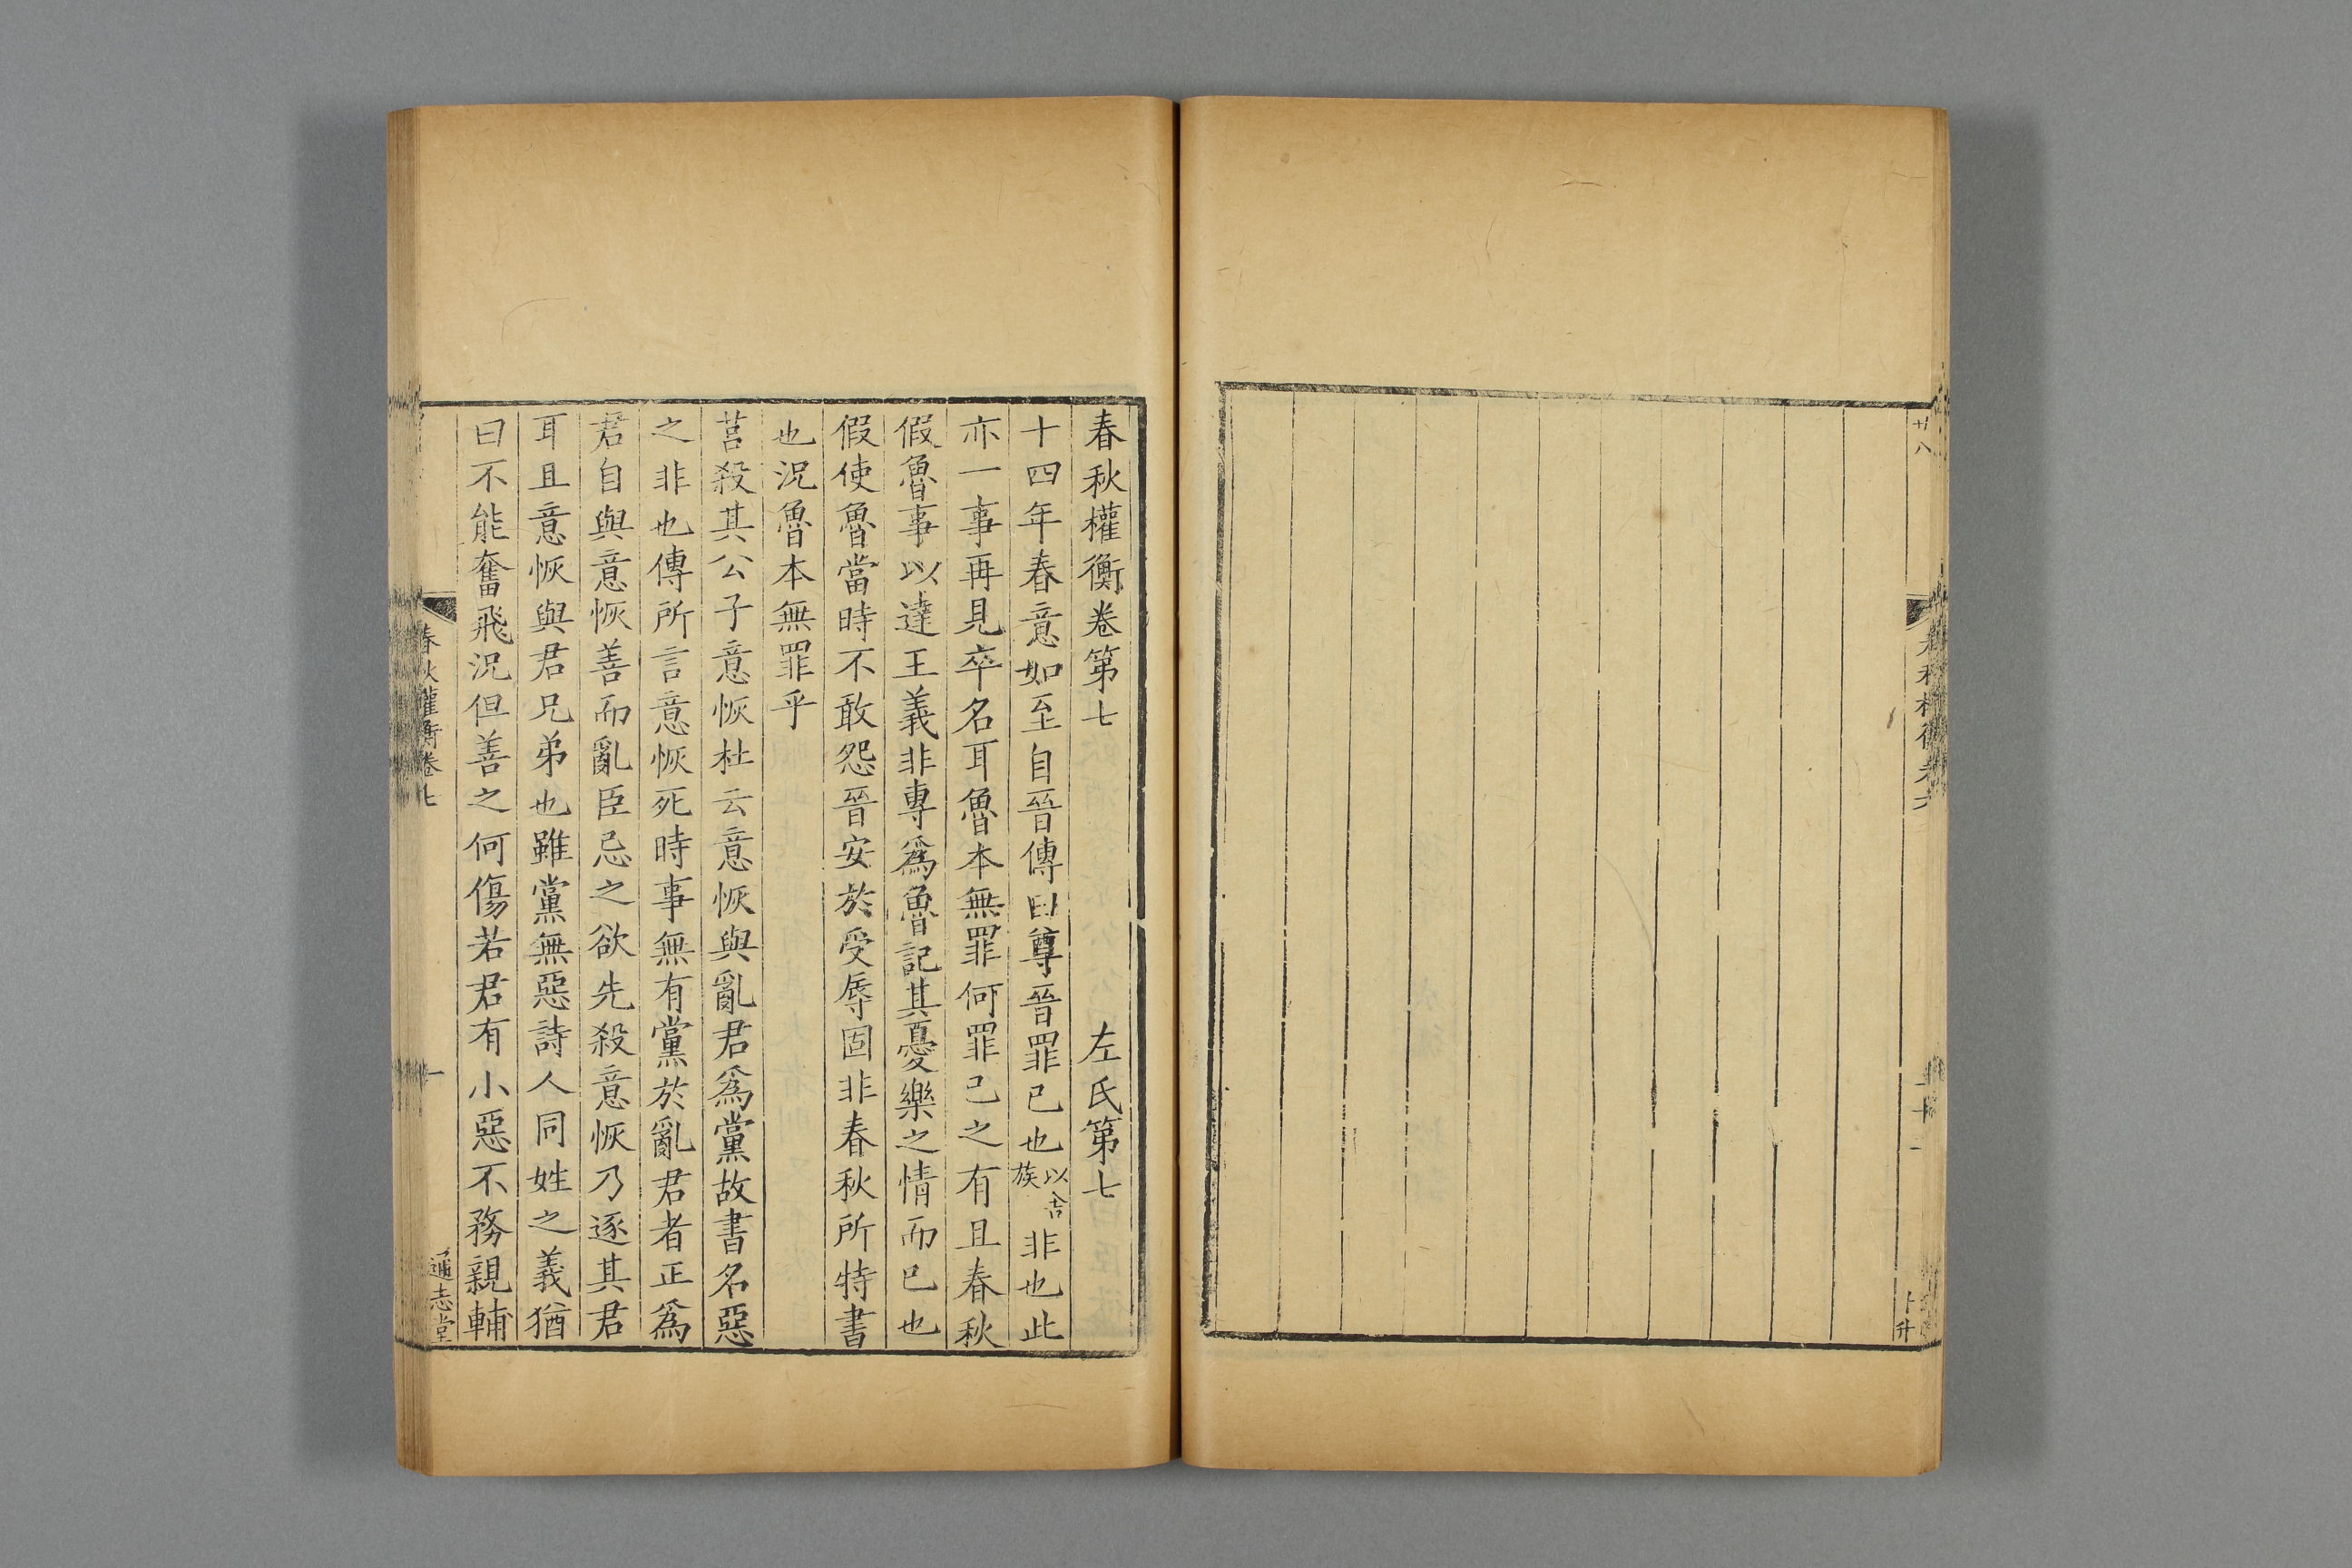 廿八
春秋權衡卷六
二十一
卜升
春秋權衡卷第七　左氏第七
十四年春意如至自晉傳曰尊晉罪己也以舍族非也此
亦一事再見卒名耳魯本無罪何罪己之有且春秋
假魯事以達王義非專爲魯記其憂樂之情而已也
假使魯當時不敢怨晉安於受辱固非春秋所特書
也況魯本無罪乎
莒殺其公子意恢杜云意恢與亂君爲黨故書名惡
之非也傳所言意恢死時事無有黨於亂君者正爲
君自與意恢善而亂臣忌之欲先殺意恢乃逐其君
耳且意恢與君兄弟也雖黨無惡詩人同姓之義猶
曰不能奮飛況但善之何傷若君有小惡不務親輔
春秋權衡卷七
一
通志堂